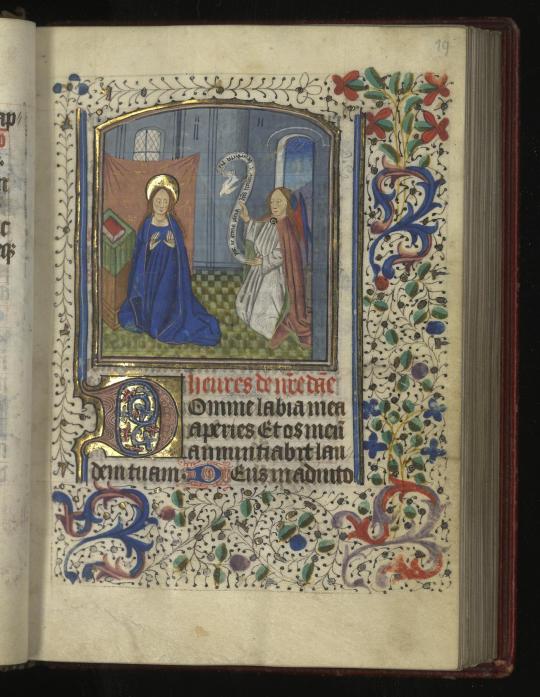 19
heures de nr̄e dāe
Domine labia mea
aperies Et os meū
annuntiabit lau
dem tuam. Deus in adiuto